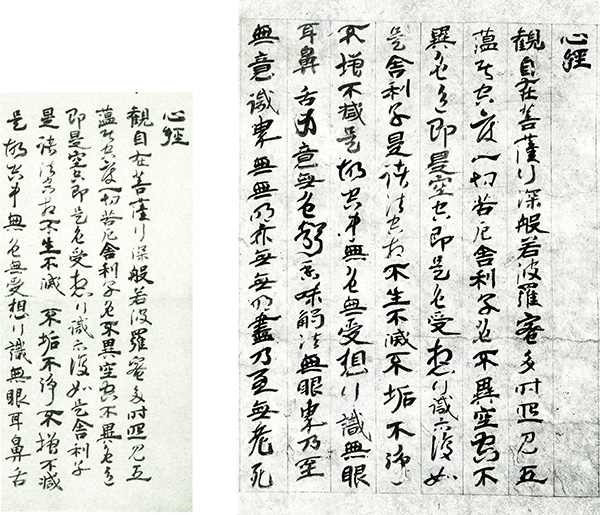 心經
観自在菩薩行深般若波羅蜜多时照見五
蘊皆空度一切苦厄舍利子色不異空空不
異色色即是空空即是色受想行識亦復如
是舍利子是諸法空相不生不滅不垢不浄
不増不減是故空中無色無受想行識無眼
耳鼻舌身意無色聲香味觸法無眼界乃至
無意識界無無明亦無無明盡乃至無老死
心經
観自在菩薩行深般若波羅蜜多时照見五
蘊皆空度一切苦厄舍利子色不異空空不異色色
即是空空即是色受想行識亦復如是舍利子
是諸法空相不生不滅不垢不浄不増不減
是故空中無色無受想行識無眼耳鼻舌